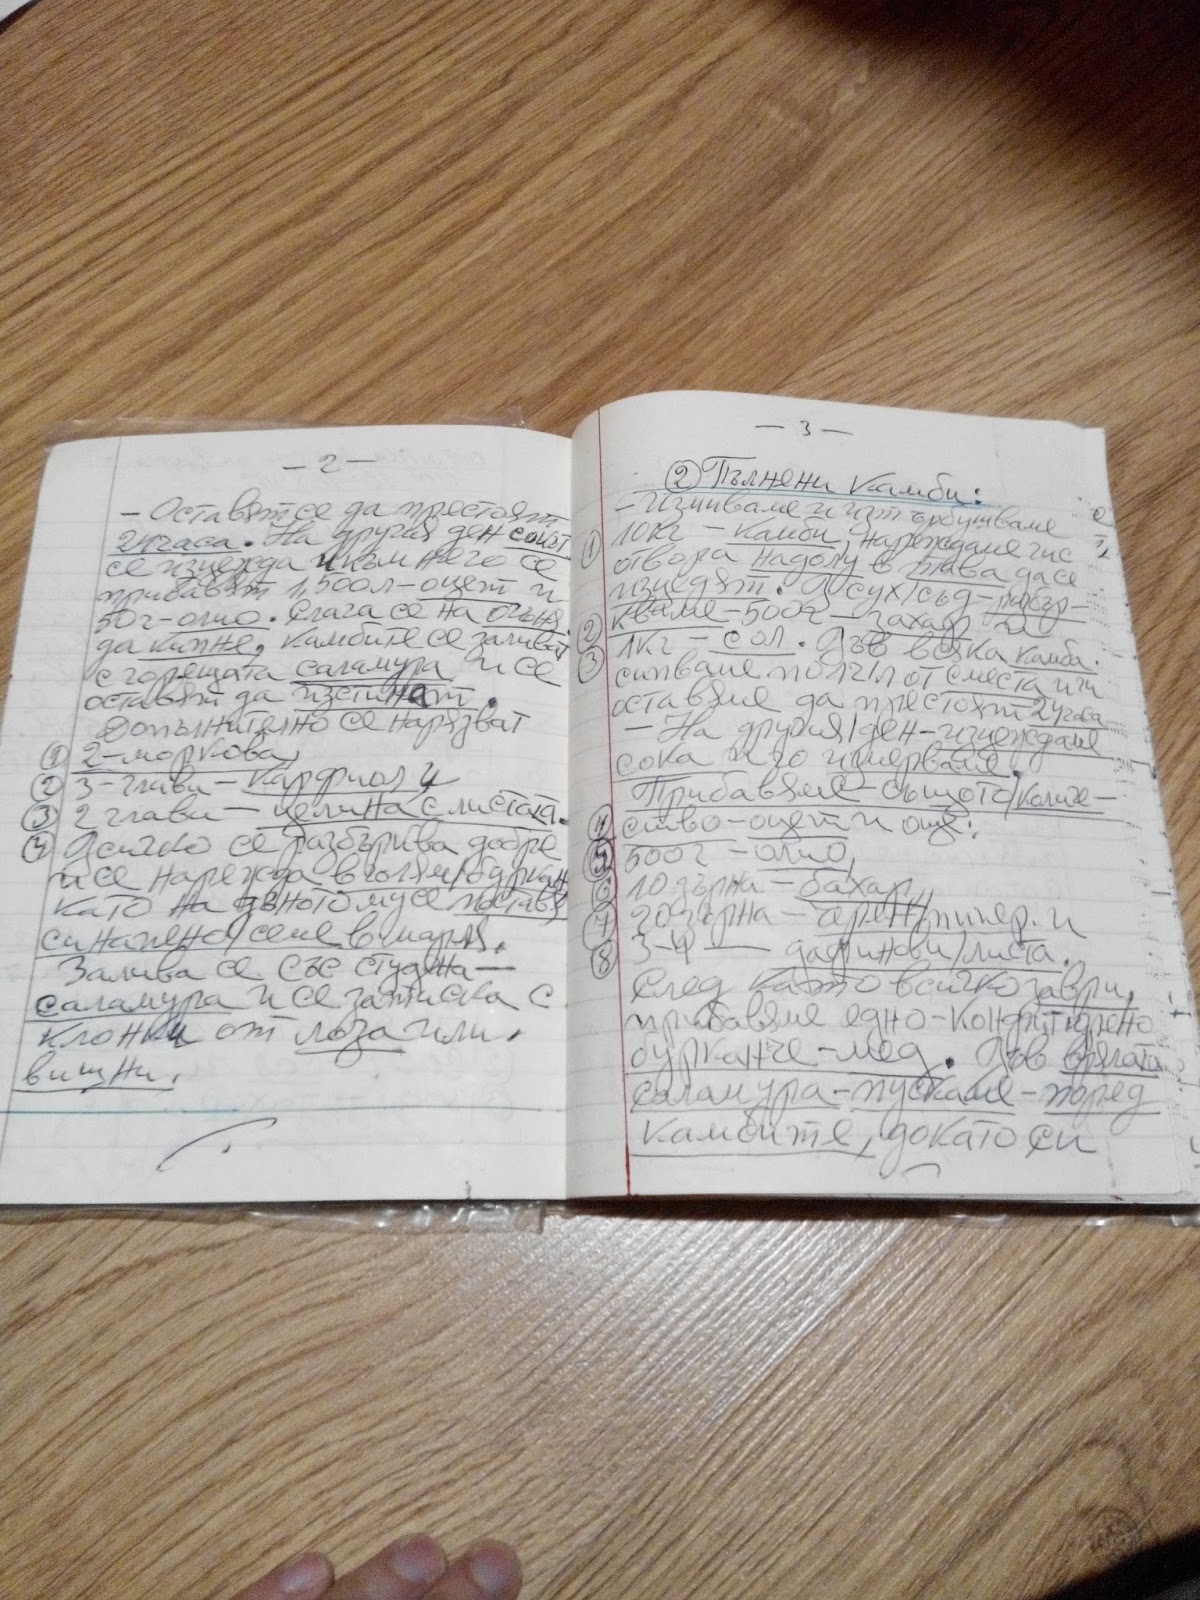 - 2 -
- Оставят се да престоят
24 часа. На другия ден сокът
се изцежда и към него се
прибавят 1,500л - оцет и
50г - олио. Слага се на огъня
да кипне. Камбите се заливат
с горещата саламура и се
оставят да изстинат.
Допълнително се нарязват
① 2 - моркова,
② 3 - глави - карфиол и
③ 2 глави - целина с листата.
④ Всичко се разбърква добре
и се нарежда в голям/буркан
като на дъното му се поставя
синапено/семе в марля.
Залива се със студена -
саламура и се затиска с
клонки от лоза или
вишни.
- 3 -
② Пълнени камби:
- Измиваме и изтърбушваме
① 10кг - камби, нареждаме ги с
отвора надолу в тава да се
изцедят. В сух/съд - разбър-
② кваме - 500г - захар и
③ 1кг - сол. Във всяка камба
сипваме по 1ч/л от сместа и ги
оставяме да престоят 24 часа
- На другия/ден - изцеждаме
сока и го измерваме.
Прибавяме - същото/количе-
④ ство - оцет и още:
⑤ 500г - олио,
⑥ 10 зърна - бахар,
⑦ 20 зърна - черен/пипер. и
⑧ 3-4 - дафинови/листа.
След като всичко заври,
прибавяме едно - конфитюрено
бурканче - мед. Във врялата
саламура - пускаме - поред
камбите, докато си